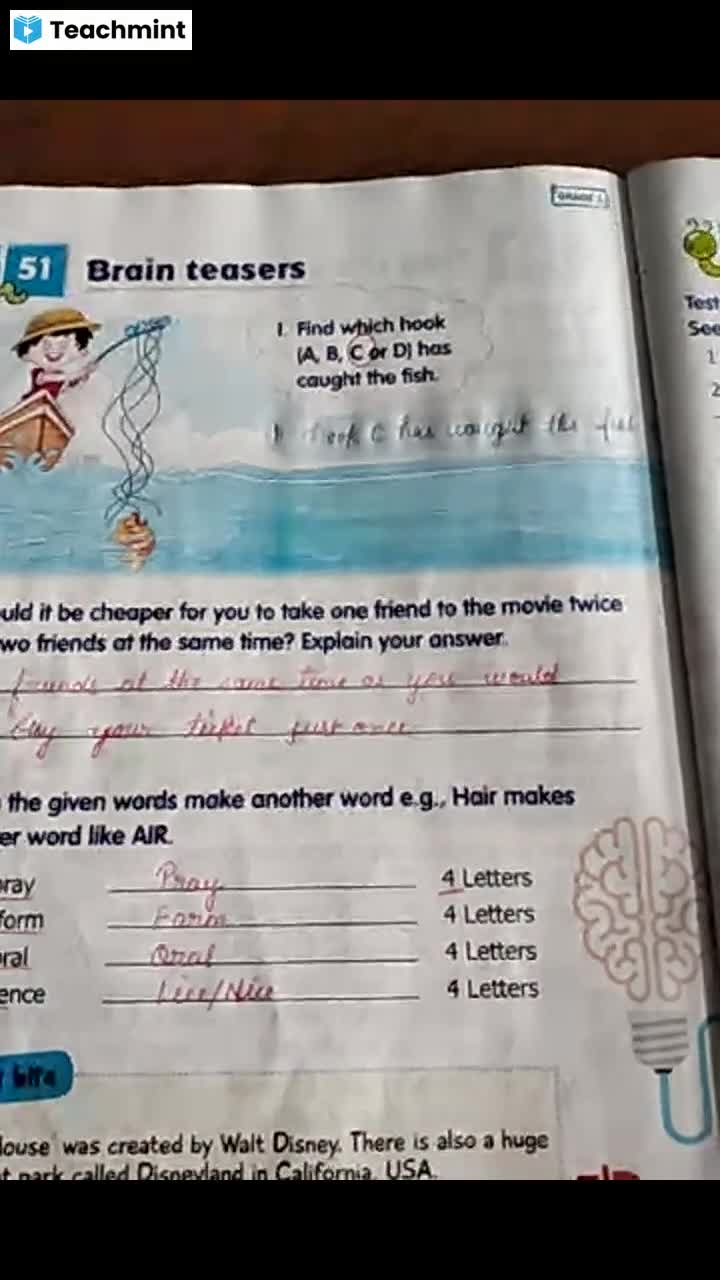 Teachmint
GRADE
51 Brain teasers
1. Find which hook
(A, B, C or D) has
caught the fish.
hook C has caught the
uld it be cheaper for you to take one friend to the movie twice
wo friends at the same time? Explain your answer.
friends at the same time as you would
Buy your ticket just once
the given words make another word e.g., Hair makes
er word like AIR.
pray Pray 4 Letters
form Form 4 Letters
oral Oral 4 Letters
ence Lice/Nice 4 Letters
Test
See
1
2
louse was created by Walt Disney. There is also a huge
t park called Disneyland in California, USA.